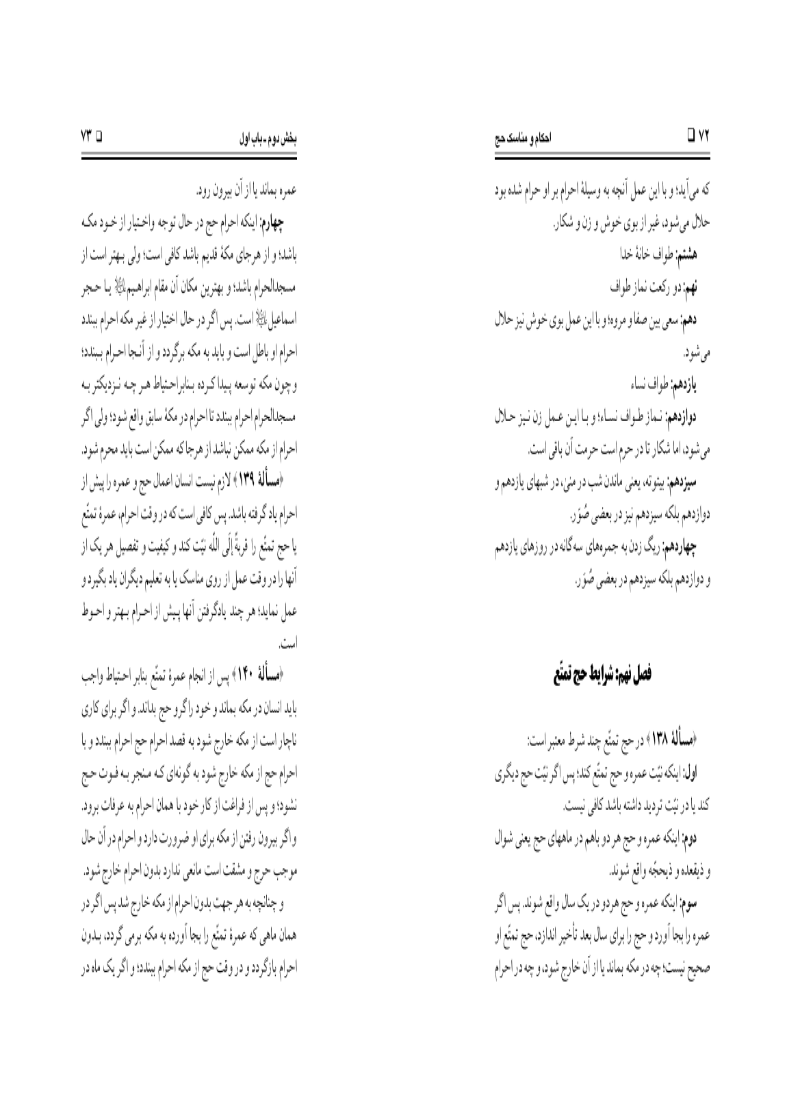 ۷۲ ❏ احکام و مناسک حج
که می‌آید؛ و با این عمل آنچه به وسیلهٔ احرام بر او حرام شده بود
حلال می‌شود، غیر از بوی خوش و زن و شکار.
هشتم: طواف خانهٔ خدا
نهم: دو رکعت نماز طواف
دهم: سعی بین صفا و مروه؛ و با این عمل بوی خوش نیز حلال
می‌شود.
یازدهم: طواف نساء
دوازدهم: نماز طواف نساء؛ و با این عمل زن نیز حلال
می‌شود، اما شکار تا در حرم است حرمت آن باقی است.
سیزدهم: بیتوته، یعنی ماندن شب در منیٰ، در شبهای یازدهم و
دوازدهم بلکه سیزدهم نیز در بعضی صُوَر.
چهاردهم: ریگ زدن به جمره‌های سه‌گانه در روزهای یازدهم
و دوازدهم بلکه سیزدهم در بعضی صُوَر.
فصل نهم: شرایط حج تمتّع
﴿مسألهٔ ۱۳۸﴾ در حج تمتّع چند شرط معتبر است:
اول: اینکه نیّت عمره و حج تمتّع کند؛ پس اگر نیّت حج دیگری
کند یا در نیّت تردید داشته باشد کافی نیست.
دوم: اینکه عمره و حج هر دو باهم در ماههای حج یعنی شوال
و ذیقعده و ذیحجّه واقع شوند.
سوم: اینکه عمره و حج هردو در یک سال واقع شوند. پس اگر
عمره را بجا آورد و حج را برای سال بعد تأخیر اندازد، حج تمتّع او
صحیح نیست؛ چه در مکه بماند یا از آن خارج شود، و چه در احرام
بخش دوم ـ باب اول ❏ ۷۳
عمره بماند یا از آن بیرون رود.
چهارم: اینکه احرام حج در حال توجه واختیار از خود مکه
باشد؛ و از هرجای مکهٔ قدیم باشد کافی است؛ ولی بهتر است از
مسجدالحرام باشد؛ و بهترین مکان آن مقام ابراهیم علیه‌السلام یا حجر
اسماعیل علیه‌السلام است. پس اگر در حال اختیار از غیر مکه احرام ببندد
احرام او باطل است و باید به مکه برگردد و از آنجا احرام ببندد؛
و چون مکه توسعه پیدا کرده بنابراحتیاط هر چه نزدیکتر به
مسجدالحرام احرام ببندد تا احرام در مکهٔ سابق واقع شود؛ ولی اگر
احرام از مکه ممکن نباشد از هرجا که ممکن است باید محرم شود.
﴿مسألهٔ ۱۳۹﴾ لازم نیست انسان اعمال حج و عمره را پیش از
احرام یاد گرفته باشد. پس کافی است که در وقت احرام، عمرهٔ تمتّع
یا حج تمتّع را قربةً إلَی اللّه نیّت کند و کیفیت و تفصیل هر یک از
آنها را در وقت عمل از روی مناسک یا به تعلیم دیگران یاد بگیرد و
عمل نماید؛ هر چند یادگرفتن آنها پیش از احرام بهتر و احوط
است.
﴿مسألهٔ ۱۴۰﴾ پس از انجام عمرهٔ تمتّع بنابر احتیاط واجب
باید انسان در مکه بماند و خود را گرو حج بداند. و اگر برای کاری
ناچار است از مکه خارج شود به قصد احرام حج احرام ببندد و با
احرام حج از مکه خارج شود به گونه‌ای که منجر به فوت حج
نشود؛ و پس از فراغت از کار خود با همان احرام به عرفات برود.
و اگر بیرون رفتن از مکه برای او ضرورت دارد و احرام در آن حال
موجب حرج و مشقت است مانعی ندارد بدون احرام خارج شود.
و چنانچه به هر جهت بدون احرام از مکه خارج شد پس اگر در
همان ماهی که عمرهٔ تمتّع را بجا آورده به مکه برمی گردد، بدون
احرام بازگردد و در وقت حج از مکه احرام ببندد؛ و اگر یک ماه در